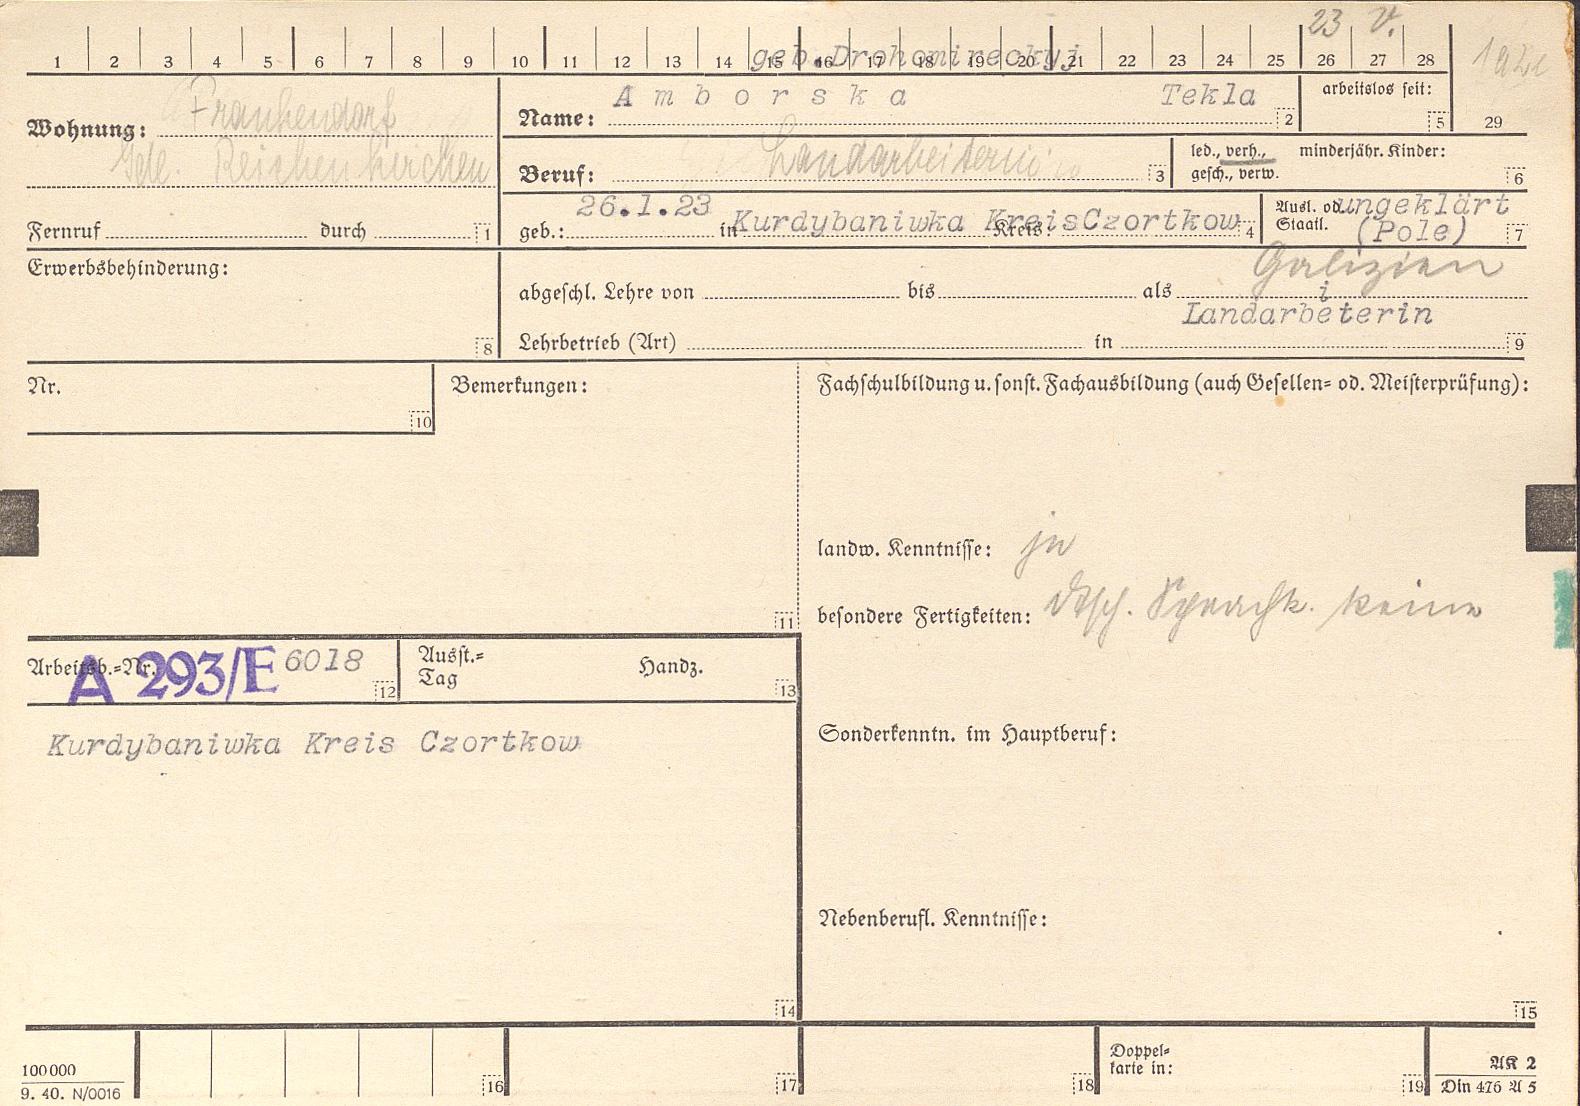 23 V.
1 2 3 4 5 6 7 8 9 10 11 12 13 14 15 16 17 18 19 20 21 22 23 24 25 26 27 28
geb. Drohomireckyj
29
Wohnung: Frankendorf
Gde. Reichenkirchen
Name: Amborska Tekla 2
arbeitslos seit: 5
Beruf: Landarbeiterin 3
led., verh., gesch., verw.
minderjähr. Kinder: 6
Fernruf durch 1
geb.: 26.1.23 in Kurdybaniwka Kreis Czortkow Kreis: 4
Ausl. od. Staatl. ungeklärt
(Pole) 7
Galizien
Erwerbsbehinderung: 8
abgeschl. Lehre von bis als
i
Landarbeterin
Lehrbetrieb (Art) in 9
Nr. 10
Bemerkungen: 11
Fachschulbildung u. sonst. Fachausbildung (auch Gesellen= od. Meisterprüfung):
landw. Kenntnisse: ja
besondere Fertigkeiten: dtsch. Sprachk. keine
Arbeitsb.=Nr. A 293/E 6018 12
Ausst.=
Tag
Handz. 13
Kurdybaniwka Kreis Czortkow
14
Sonderkenntn. im Hauptberuf:
Nebenberufl. Kenntnisse:
15
100 000
9. 40. N/0016
16 17 18
Doppel=
karte in: 19
AK 2
Din 476 A 5